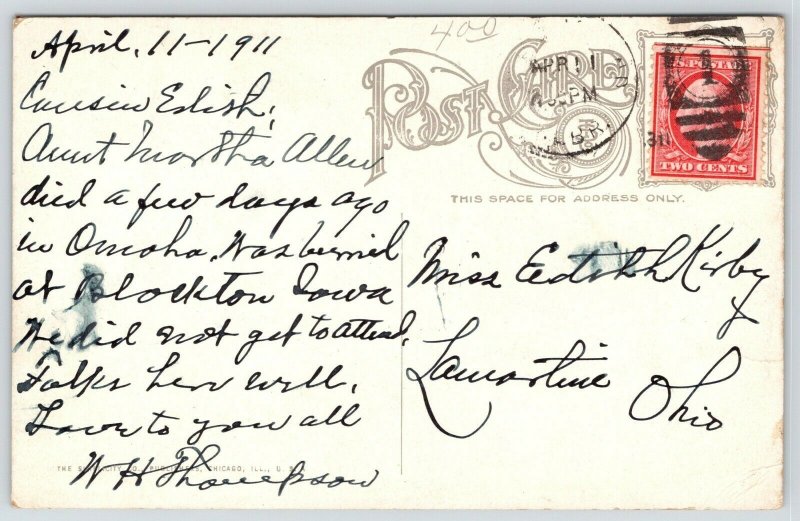 April, 11-1911
Cousin Edith;
Aunt Martha Allen
died a few days ago
in Omaha. Was buried
at Blockton Iowa
We did not get to attend,
Folks here well,
Love to you all
W H Thompson
400
POST CARD
APR 11
PM
U.S. POSTAGE
1
TWO CENTS
THIS SPACE FOR ADDRESS ONLY.
Miss Edith Kirby
Lamartine
Ohio
CHICAGO, ILL., U. S.